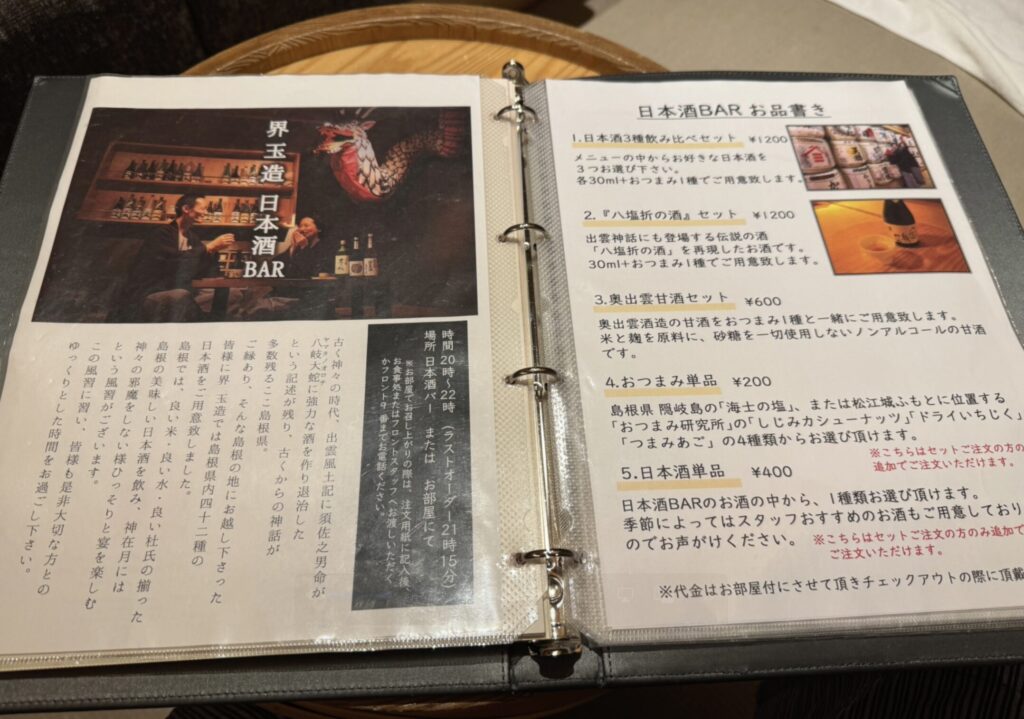 界 玉造 日本酒
BAR
時間 20時～22時 (ラストオーダー21時15分)
場所 日本酒バー または お部屋にて
※お部屋でお召し上がりの際は、注文用紙に記入後、
お食事処またはフロントスタッフへお渡しいただく
かフロント9番までお電話ください。
古く神々の時代、出雲風土記に須佐之男命が
ヤマタノオロチ
八岐大蛇に強力な酒を作り退治した
という記述が残り、古くからの神話が
多数残るここ島根県。
ご縁あり、そんな島根の地にお越し下さった
皆様に界 玉造では島根県内四十二種の
日本酒をご用意致しました。
島根では、良い米・良い水・良い杜氏の揃った
島根の美味しい日本酒を飲み、神在月には
神々の邪魔をしない様ひっそりと宴を楽しむ
という風習がございます。
この風習に習い、皆様も是非大切な方との
ゆっくりとした時間をお過ごし下さい。
日本酒BAR お品書き
1.日本酒3種飲み比べセット ¥1200
メニューの中からお好きな日本酒を
3つお選び下さい。
各30ml+おつまみ1種でご用意致します。
2.『八塩折の酒』セット ¥1200
出雲神話にも登場する伝説の酒
「八塩折の酒」を再現したお酒です。
30ml+おつまみ1種でご用意致します。
3.奥出雲甘酒セット ¥600
奥出雲酒造の甘酒をおつまみ1種と一緒にご用意致します。
米と麹を原料に、砂糖を一切使用しないノンアルコールの甘酒
です。
4.おつまみ単品 ¥200
島根県 隠岐島の「海士の塩」、または松江城ふもとに位置する
「おつまみ研究所」の「しじみカシューナッツ」「ドライいちじく」
「つまみあご」の4種類からお選び頂けます。
※こちらはセットご注文の方の
追加でご注文いただけます。
5.日本酒単品 ¥400
日本酒BARのお酒の中から、1種類お選び頂けます。
季節によってはスタッフおすすめのお酒もご用意しており
のでお声がけください。
※こちらはセットご注文の方のみ追加で
ご注文いただけます。
※代金はお部屋付にさせて頂きチェックアウトの際に頂戴